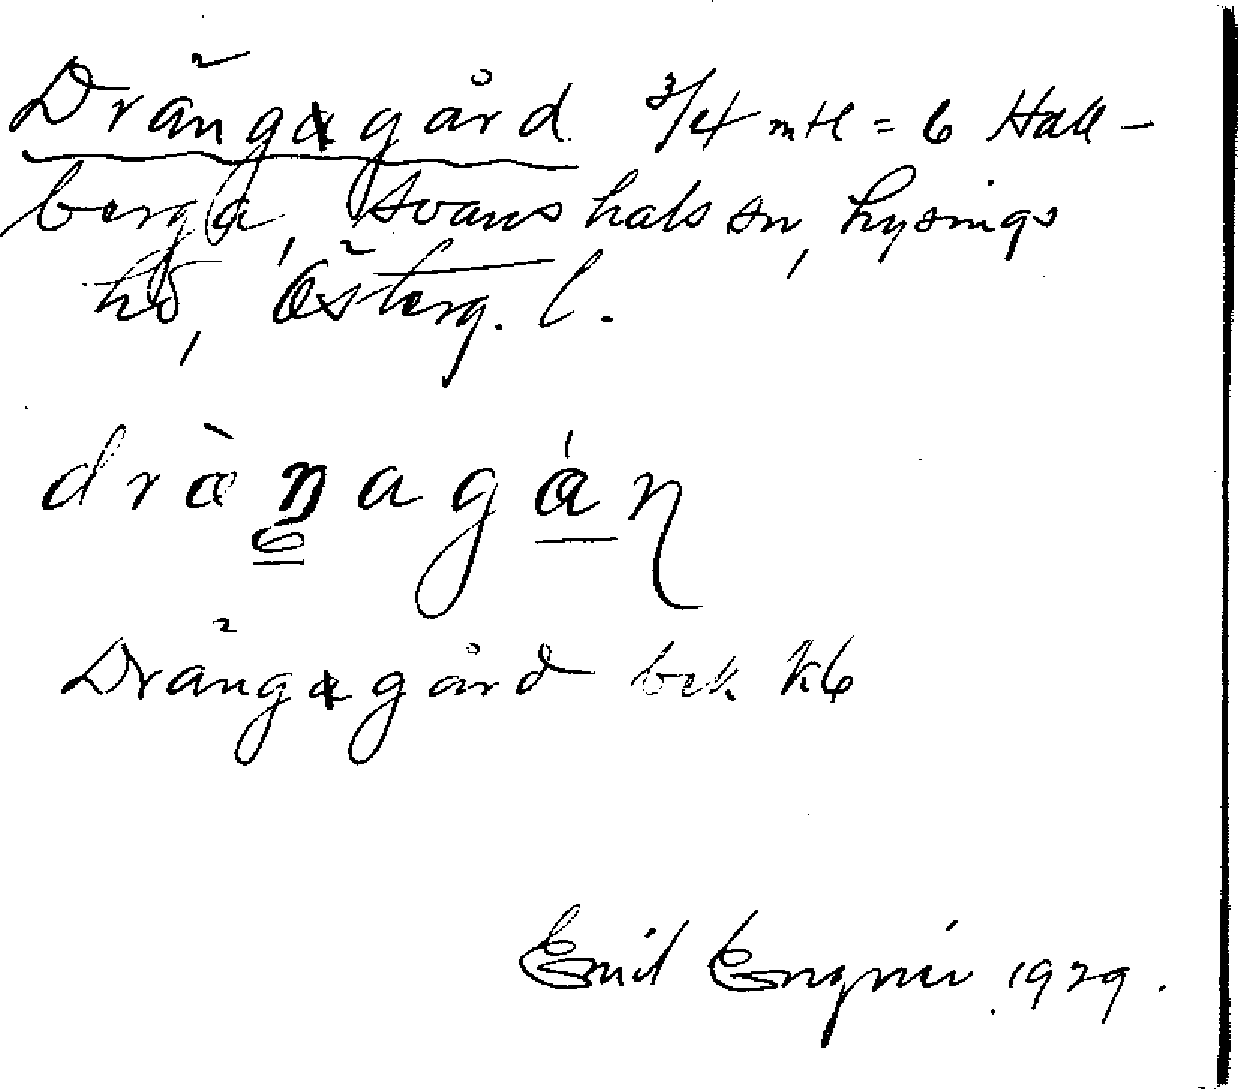 Drängagård 3/4 mtl = 6 Hall-
berga, Svanshals sn, Lysings
hd, Österg. l.
dræ̀ŋagá̱ṇ
Drängagård bek k6
Emil Engner 1929.